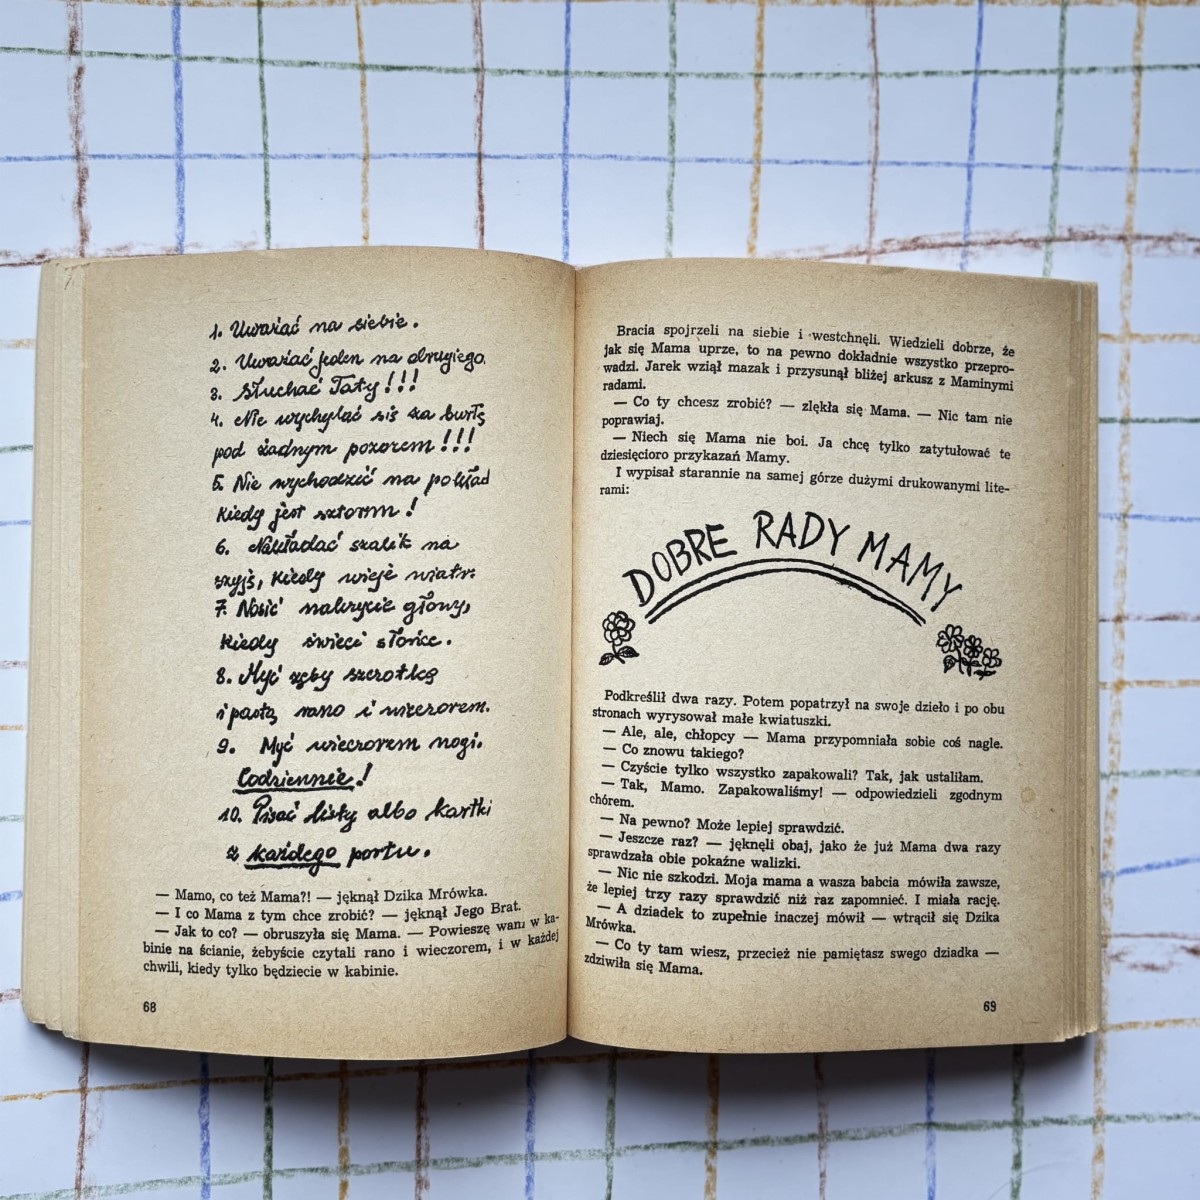 1. Uważać na siebie.
2. Uważać jeden na drugiego.
3. Słuchać Taty!!!
4. Nie wychylać się za burtę
pod żadnym pozorem!!!
5. Nie wychodzić na pokład
kiedy jest sztorm!
6. Nakładać szalik na
szyję, kiedy wieje wiatr.
7. Nosić nakrycie głowy,
kiedy świeci słońce.
8. Myć zęby szczotką
i pastą rano i wieczorem.
9. Myć wieczorem nogi.
Codziennie!
10. Pisać listy albo kartki
z każdego portu.
— Mamo, co też Mama?! — jęknął Dzika Mrówka.
— I co Mama z tym chce zrobić? — jęknął Jego Brat.
— Jak to co? — obruszyła się Mama. — Powieszę wam w ka-
binie na ścianie, żebyście czytali rano i wieczorem, i w każdej
chwili, kiedy tylko będziecie w kabinie.
68
Bracia spojrzeli na siebie i westchnęli. Wiedzieli dobrze, że
jak się Mama uprze, to na pewno dokładnie wszystko przepro-
wadzi. Jarek wziął mazak i przysunął bliżej arkusz z Maminymi
radami.
— Co ty chcesz zrobić? — zlękła się Mama. — Nic tam nie
poprawiaj.
— Niech się Mama nie boi. Ja chcę tylko zatytułować te
dziesięcioro przykazań Mamy.
I wypisał starannie na samej górze dużymi drukowanymi lite-
rami:
DOBRE RADY MAMY
Podkreślił dwa razy. Potem popatrzył na swoje dzieło i po obu
stronach wyrysował małe kwiatuszki.
— Ale, ale, chłopcy — Mama przypomniała sobie coś nagle.
— Co znowu takiego?
— Czyście tylko wszystko zapakowali? Tak, jak ustaliłam.
— Tak, Mamo. Zapakowaliśmy! — odpowiedzieli zgodnym
chórem.
— Na pewno? Może lepiej sprawdzić.
— Jeszcze raz? — jęknęli obaj, jako że już Mama dwa razy
sprawdzała obie pokaźne walizki.
— Nic nie szkodzi. Moja mama a wasza babcia mówiła zawsze,
że lepiej trzy razy sprawdzić niż raz zapomnieć. I miała rację.
— A dziadek to zupełnie inaczej mówił — wtrącił się Dzika
Mrówka.
— Co ty tam wiesz, przecież nie pamiętasz swego dziadka —
zdziwiła się Mama.
69